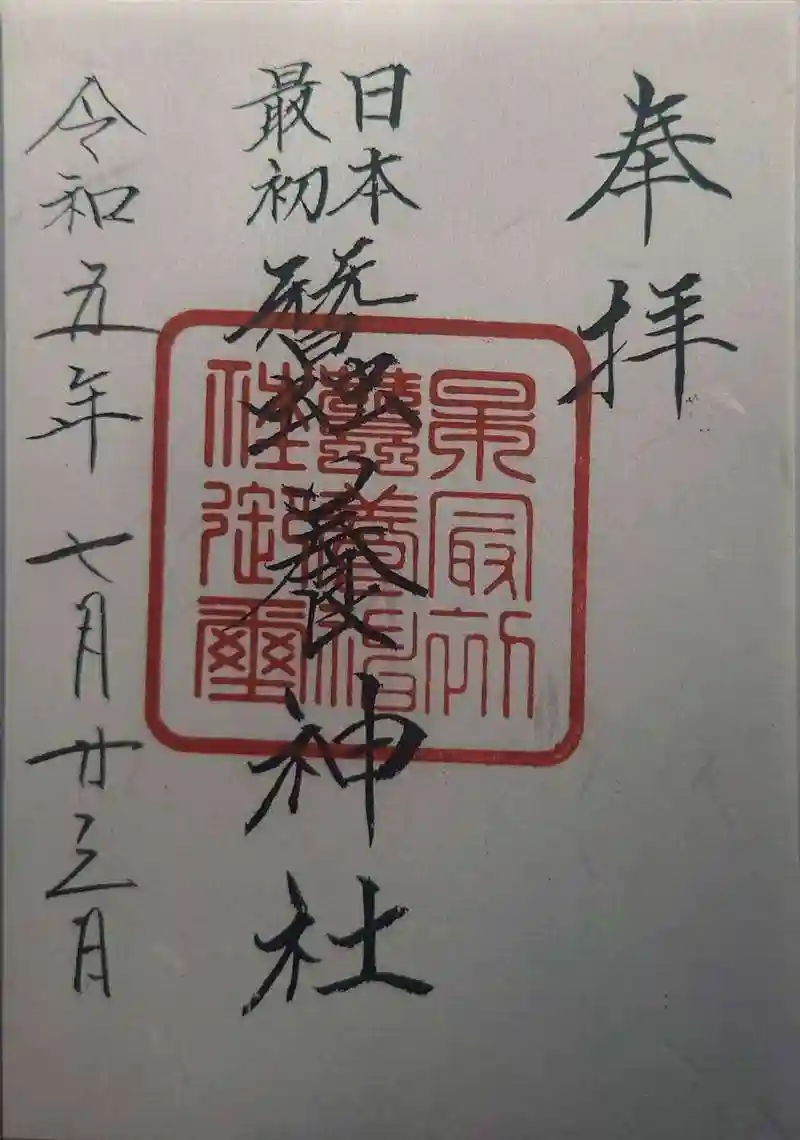 奉拝
日本
最初
蠶養神社
令和五年七月廿三月
日本最初
蠶養神
社御璽